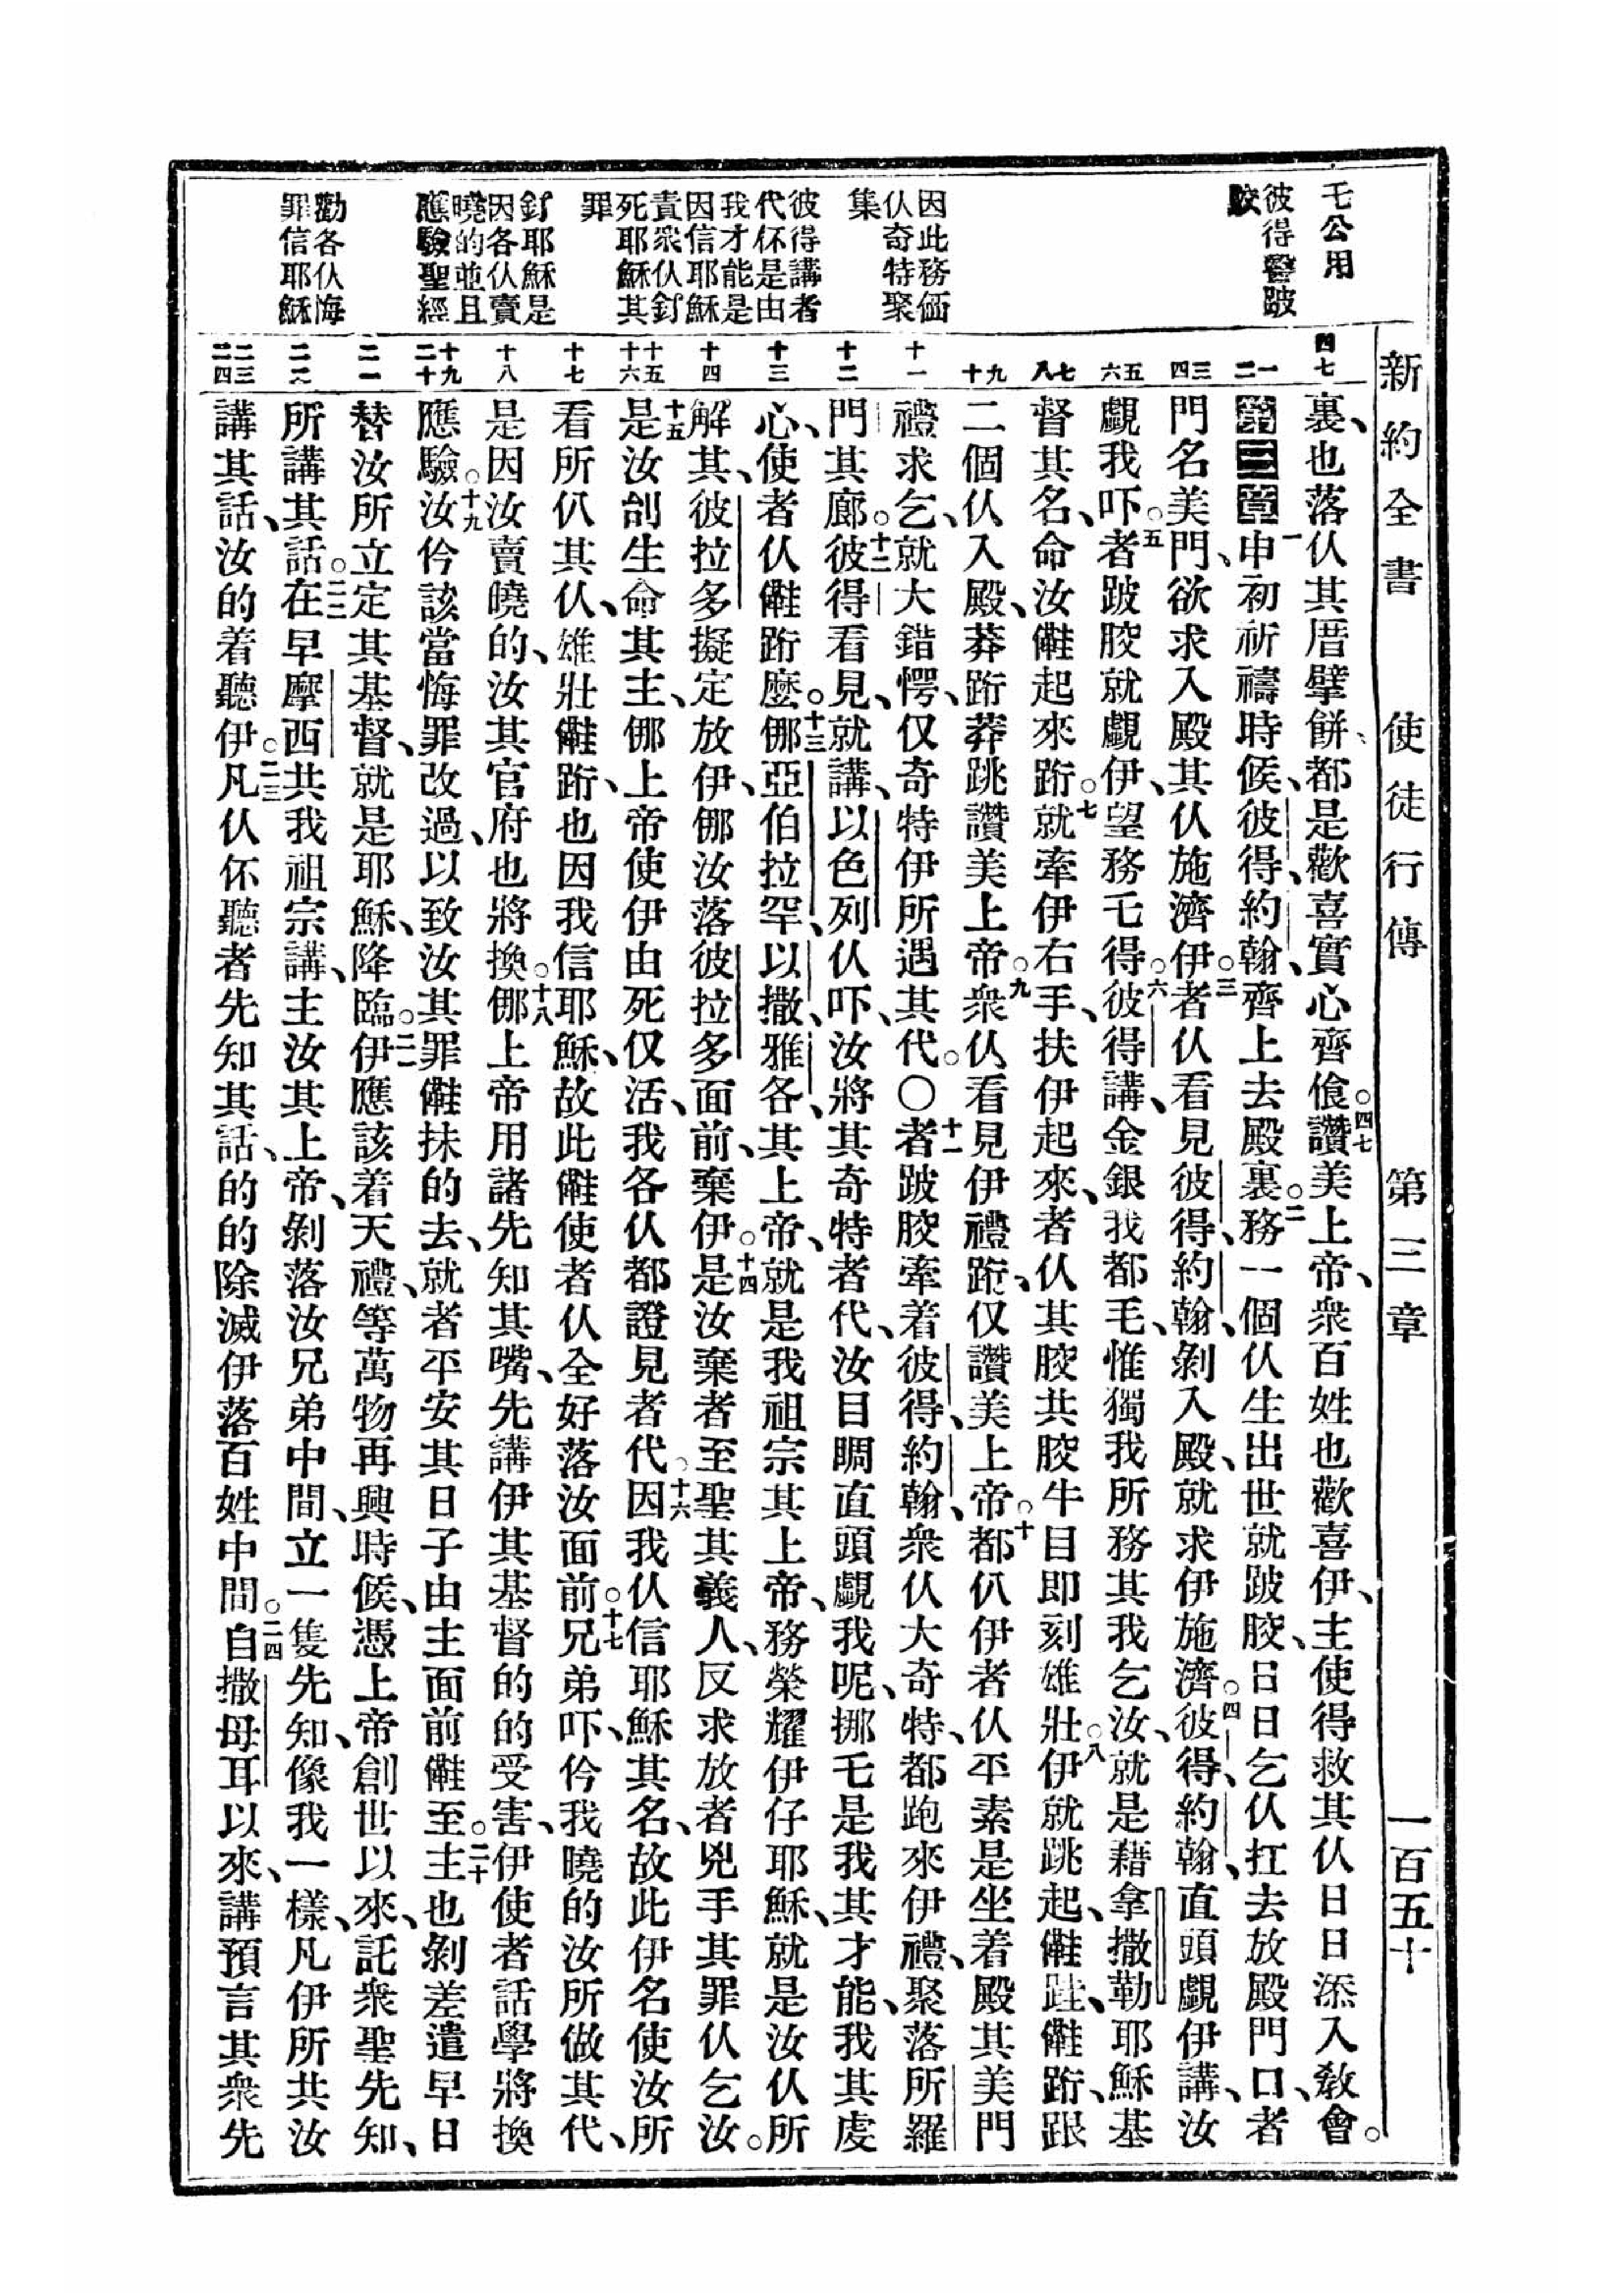 新約全書 使徒行傳 第三章 一百五十
乇公用
彼得醫跛
骹
因此務価
仈奇特聚
集
彼得講者
代伓是由
我才能是
因信耶穌
責衆仈釘
死耶穌其
罪
釘耶穌是
因各仈賣
曉的並且
應驗聖經
勸各仈悔
罪信耶穌
四七
一二
三四
五六
七八
九十
十一
十二
十三
十四
十五十六
十七
十八
十九二十
二一
二二
二三二四
裏、也落仈其厝擘餅、都是歡喜實心齊飡。四七讚美上帝、衆百姓也歡喜伊、主使得救其仈日日添入敎會。
第三章一申初祈禱時候、彼得、約翰、齊上去殿裏。二務一個仈生出世就跛骹、日日乞仈扛去放殿門口、者
門名美門、欲求入殿其仈施濟伊。三者仈看見彼得、約翰、剝入殿、就求伊施濟。四彼得、約翰、直頭覷伊講、汝
覷我吓。五者跛骹就覷伊、望務乇得。六彼得講、金銀我都毛、惟獨我所務其我乞汝、就是藉拿撒勒耶穌基
督其名、命汝𣍐起來跲。七就牽伊右手、扶伊起來、者仈其骹共骹牛目卽刻雄壯。八伊就跳起、跬、跲、跟
二個仈入殿、莽跲莽跳讚美上帝。九衆仈看見伊禮跲、仅讚美上帝。十都仈伊者仈平素是坐着殿其美門
禮求乞、就大錯愕、仅奇特伊所遇其代。〇十一者跛骹牽着彼得、約翰、衆仈大奇特、都跑來伊禮、聚落所羅
門其廊。十二彼得看見、就講、以色列仈吓、汝將其奇特者代、汝目睭直頭覷我呢、挪乇是我其才能、我其虔
心、使者仈跲麼。十三那亞伯拉罕、以撒、雅各、其上帝、就是我祖宗其上帝、務榮耀伊仔耶穌、就是汝仈所
解其、彼拉多擬定放伊、那汝落彼拉多面前、棄伊。十四是汝棄者至聖其義人、反求放者兇手其罪仈乞汝。
十五是汝刣生命其主、那上帝使伊由死仅活、我各仈都證見者代。十六因我仈信耶穌其名、故此伊名使汝所
看所仈其仈、雄壯跲、也因我信耶穌、故此使者仈全好落汝面前。十七兄弟吓、仱我曉的汝所做其代、所
是因汝賣曉的、汝其官府也將換。十八那上帝用諸先知其嘴、先講伊其基督的的受害、伊使者話學將換
應驗。十九汝仱該當悔罪改過、以致汝其罪抹的去、就者平安其日子由主面前至。二十主也剝差遣早日
替汝所立定其基督、就是耶穌、降臨。二一伊應該着天禮、等萬物再興時候、憑上帝創世以來、託衆聖先知、
所講其話。二二在早摩西共我祖宗講、主汝其上帝、剝落汝兄弟中間、立一隻先知、像我一樣、凡伊所共汝
講其話、汝的着聽伊。二三凡仈伓聽者先知其話、的的除滅伊落百姓中間。二四自撒母耳以來、講預言其衆先